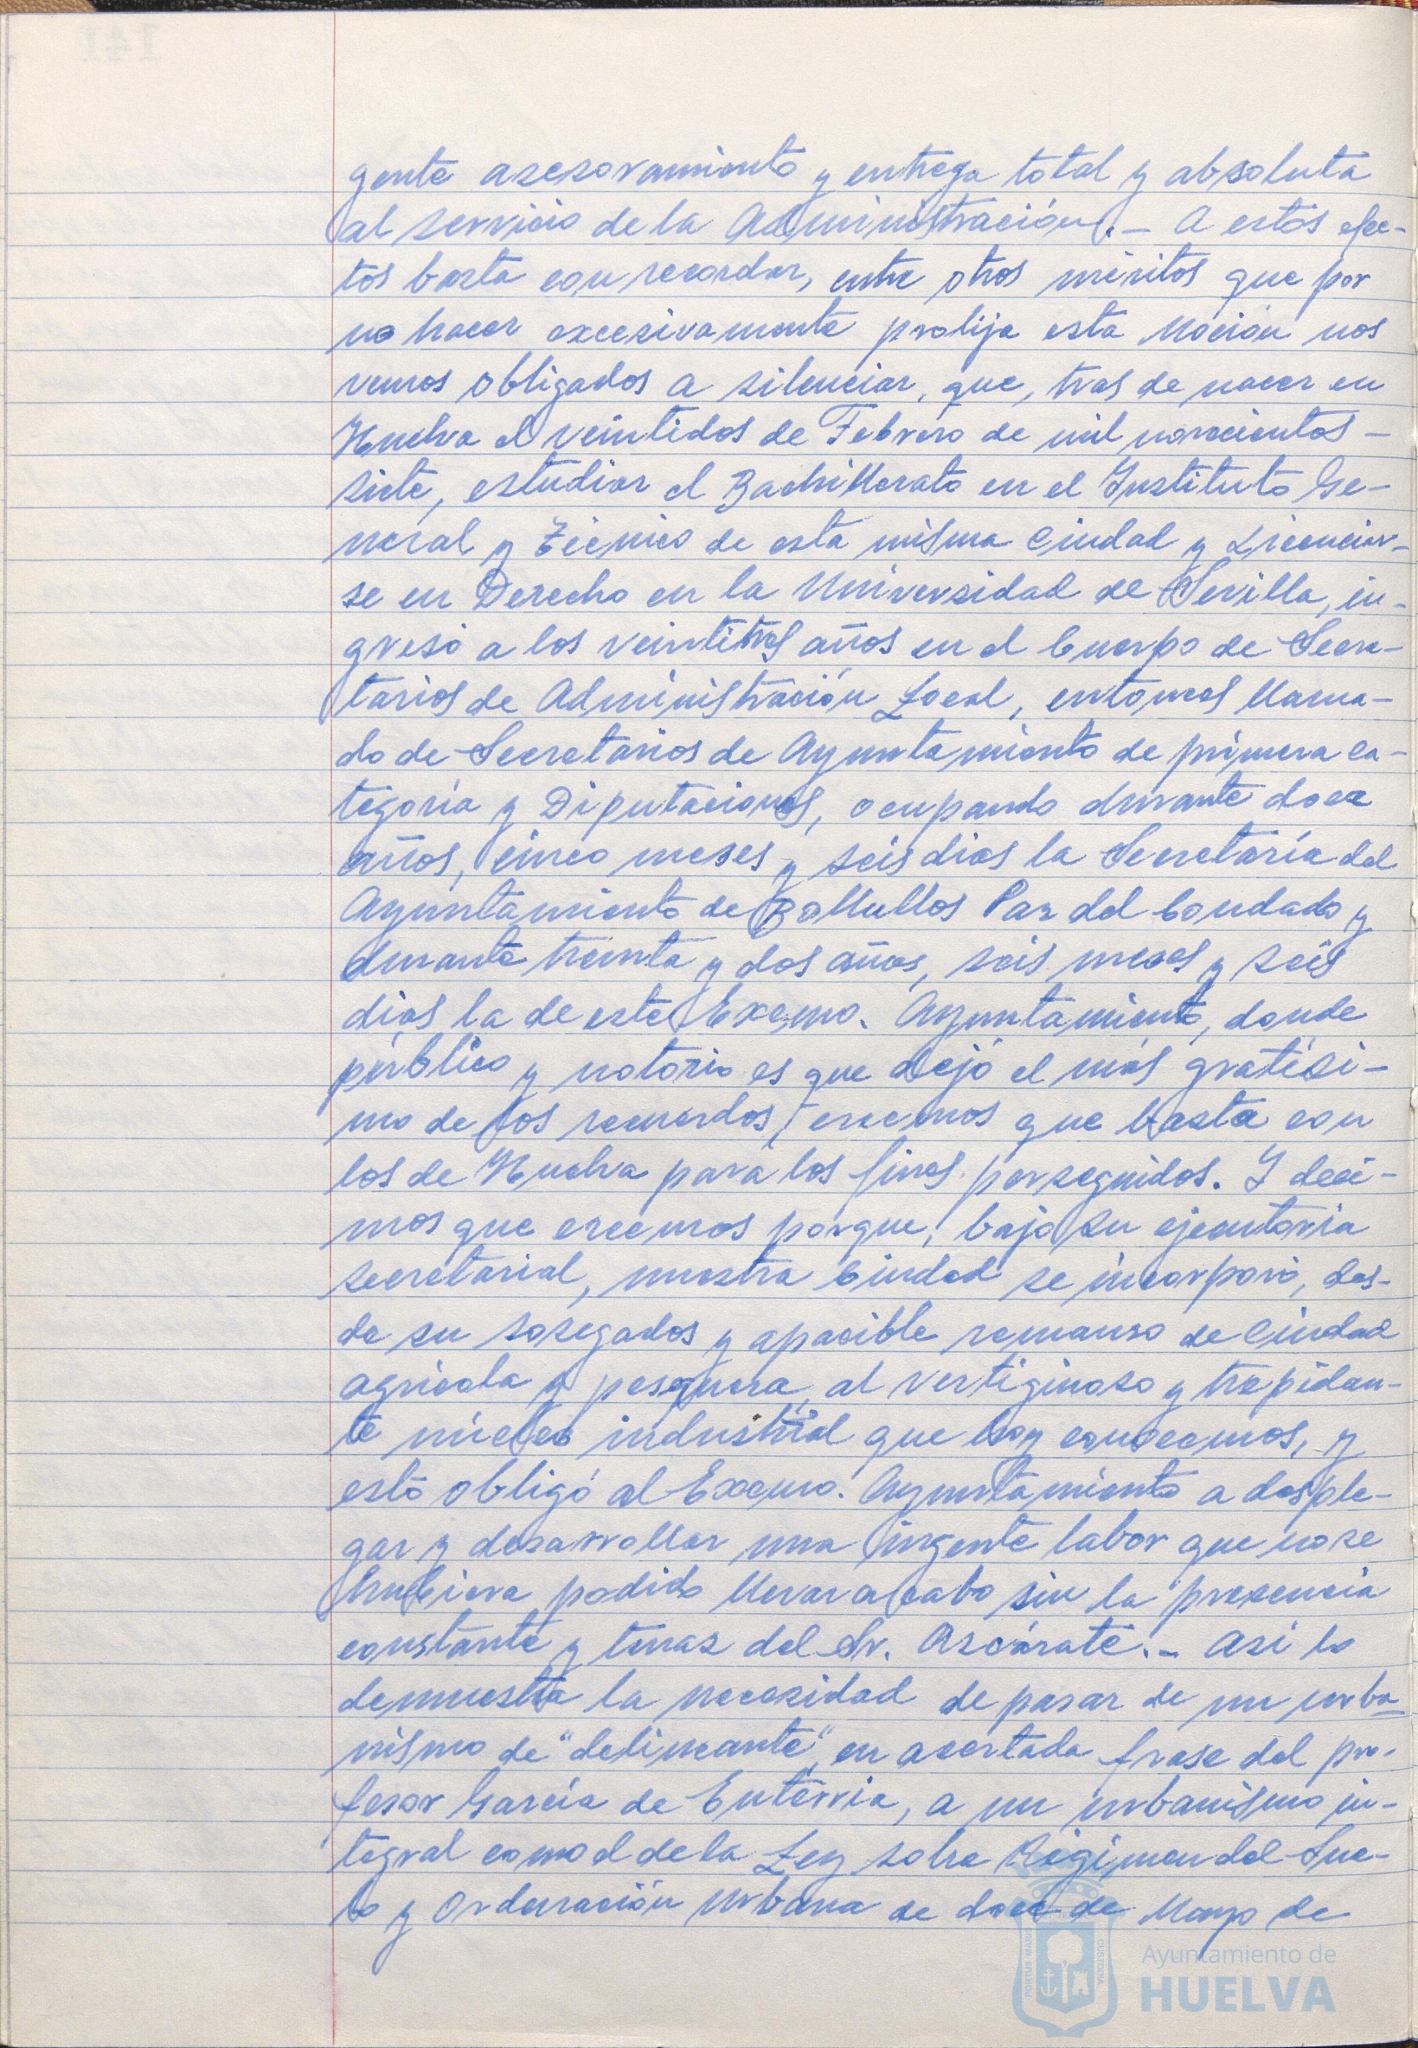 gente asesoramiento y entrega total y absoluta
al servicio de la Administración.- A estos efec-
tos basta con recordar, entre otros méritos que por
no hacer excesivamente prolija esta Moción nos
vemos obligados a silenciar, que, tras de nacer en
Huelva el veintidos de Febrero de mil novecientos-
siete, estudiar el Bachillerato en el Instituto Ge-
neral y Técnico de esta misma Ciudad y Licenciar-
se en Derecho en la Universidad de Sevilla, in-
gresó a los veintitres años en el Cuerpo de Secre-
tarios de Administración Local, entonces llama-
do de Secretarios de Ayuntamiento de primera ca-
tegoría y Diputaciones, ocupando durante doce
años, cinco meses y seis dias la Secretaría del
Ayuntamiento de Bollullos Par del Condado y
durante treinta y dos años, seis meses y seis
dias la de este Excmo. Ayuntamiento, donde
público y notorio es que dejó el más gratísi-
mo de los recuerdos, creemos que basta con
los de Huelva para los fines perseguidos. Y deci-
mos que creemos porque, bajo su ejecutoria
secretarial, nuestra Ciudad se incorporó, des-
de su sosegados y apacible remanso de Ciudad
agrícola y pesquera, al vertiginoso y trepidan-
te núcleo industrial que hoy conocemos, y
esto obligó al Excmo. Ayuntamiento a desple-
gar y desarrollar una ingente labor que no se
hubiera podido llevar a cabo sin la presencia
constante y tenaz del Sr. Azcárate.- Asi lo
demuestra la necesidad de pasar de un urba-
nismo de "delineante", en acertada frase del pro-
fesor García de Enterría, a un urbanismo in-
tegral como el de la Ley sobre Régimen del Sue-
lo y Ordenación Urbana de doce de Mayo de
PORTUS MARIS
CUSTODIA
Ayuntamiento de
HUELVA